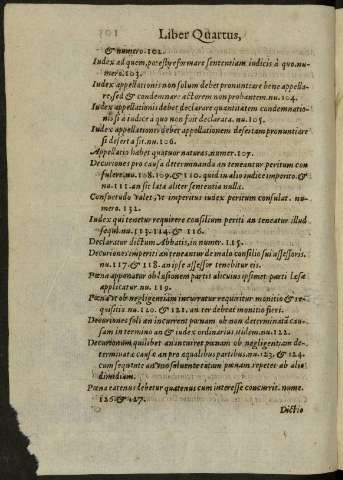 Liber Quartus,
& numero. 102.
Iudex ad quem, potest reformare sententiam iudicis à quo. nu-
mero. 103.
Iudex appellationis non solùm debet pronuntiare bene appella-
re, sed & condemnare actorem non probantem. nu. 104.
Iudex appellationis debet declarare quantitatem condemnatio-
nis si à iudice à quo non fuit declarata. nu. 105.
Iudex appellationis debet appellationem desertam pronuntiare
si deserta sit. nu. 106.
Appellatio habet quatuor naturas, numer. 107.
Decuriones pro causa determinanda an teneantur peritum con
sulere. nu. 108. 109. & 110. quid in alio iudice imperito. &
nu. 111. an sit lata aliter sententia nulla.
Consuetudo valet, vt imperitus iudex peritum consulat. nu-
mero. 112.
Iudex qui tenetur requirere consilium periti an teneatur illud
sequi. nu. 113. 114. & 116.
Declaratur dictum Abbatis, in numer. 115.
Decuriones imperiti an teneantur de malo consilio sui assessoris.
nu. 117. & 118. an ipse assessor tenebitur eis.
Pœna apponatur ob lusionem partis alicuius ipsimet parti læsæ
applicatur nu. 119.
Pœna vt ob negligentiam incurratur requiritur monitio & re-
quisitio nu. 120. & 121. an ter debeat monitio fieri.
Decuriones soli an incurrent pœnam ob non determinatã cau-
sam in termino an & iudex ordinarius itidem. nu. 122.
Decurionum quilibet an incurret pœnam ob negligentiam de-
terminatæ causæ an pro æqualibus partibus. nu. 123. & 124.
cum sequente an vno soluente totam pœnam repetet ab alio
dimidiam.
Pœna eatenus debetur quatenus cum interesse concurrit. nume.
126. & 127.
Dictio